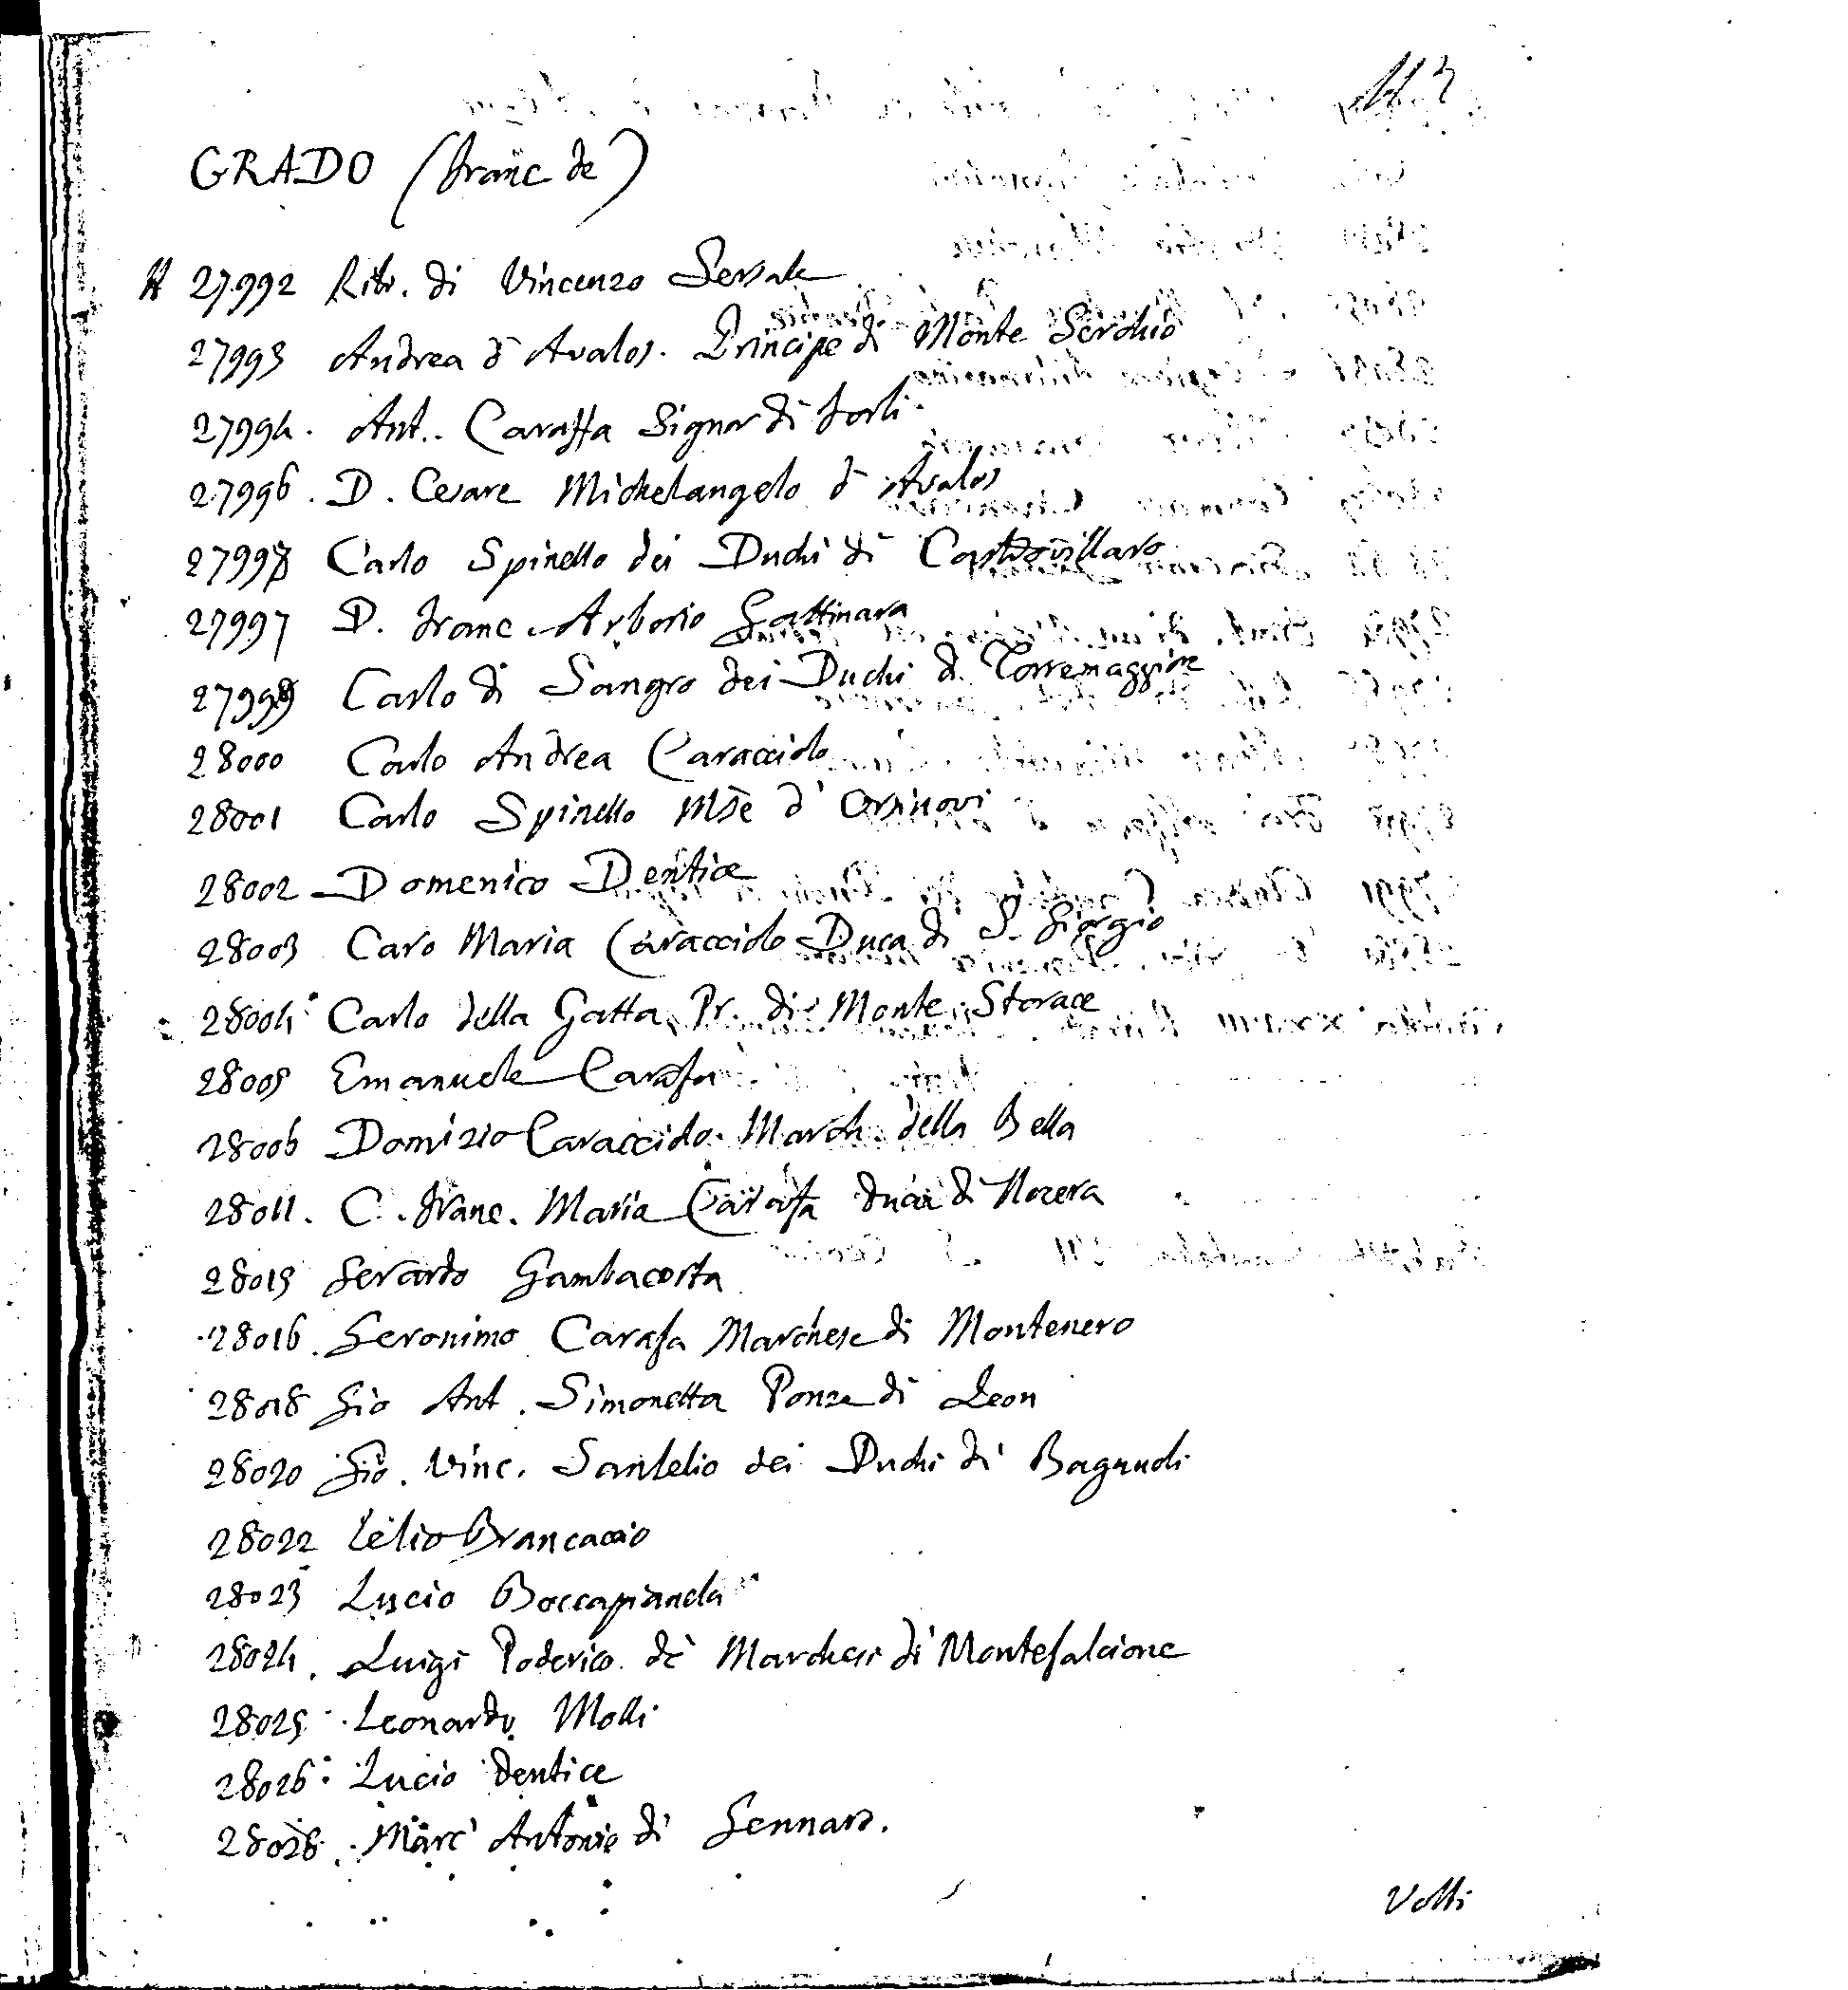 GRADO (Franc de)
27992 Ritr. di Vincenzo Sersale
27993 Andrea d' Avalos. Principe di Monte Serchio
27994. Ant.. Caraffa Signor di Forli.
27996. D. Cesare Michelangelo d' Avalos
27998 Carlo Spinello dei Duchi di Castrovillaro
27997 D. Franc. Arborio Gattinara
27999 Carlo di Sangro dei Duchi di Torremaggiore
28000 Carlo Andrea Caracciolo
28001 Carlo Spinello Mse d' Orsinovi
28002 Domenico Dentice
28003 Caro Maria Caracciolo Duca di S. Giorgio
28004 Carlo della Gatta Pr. di Monte Storace
28005 Emanuele Carafa
28006 Domizio Caracciolo. March. della Bella
28011. C. Franc. Maria Carafa duca di Nocera
28015 Gerardo Gambacorta
28016. Geronimo Carafa Marchese di Montenero
28018 Gio Ant. Simonetta Ponze di Leon
28020 Gio. Vinc. Sanfelio dei Duchi di Bagnuoli
28022 Lelio Brancaccio
28023 Luscio Boccapianola
28024. Luigi Poderico de Marchesi di Montefalcione
28025. Leonardo Molli
28026. Lucio Dentice
28028. Marc' Antonio di Gennaro.
Volti